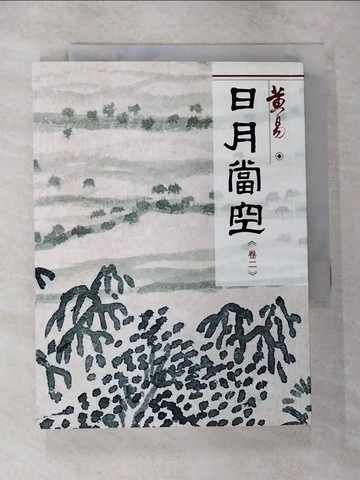 黃易
日月當空
《卷二》